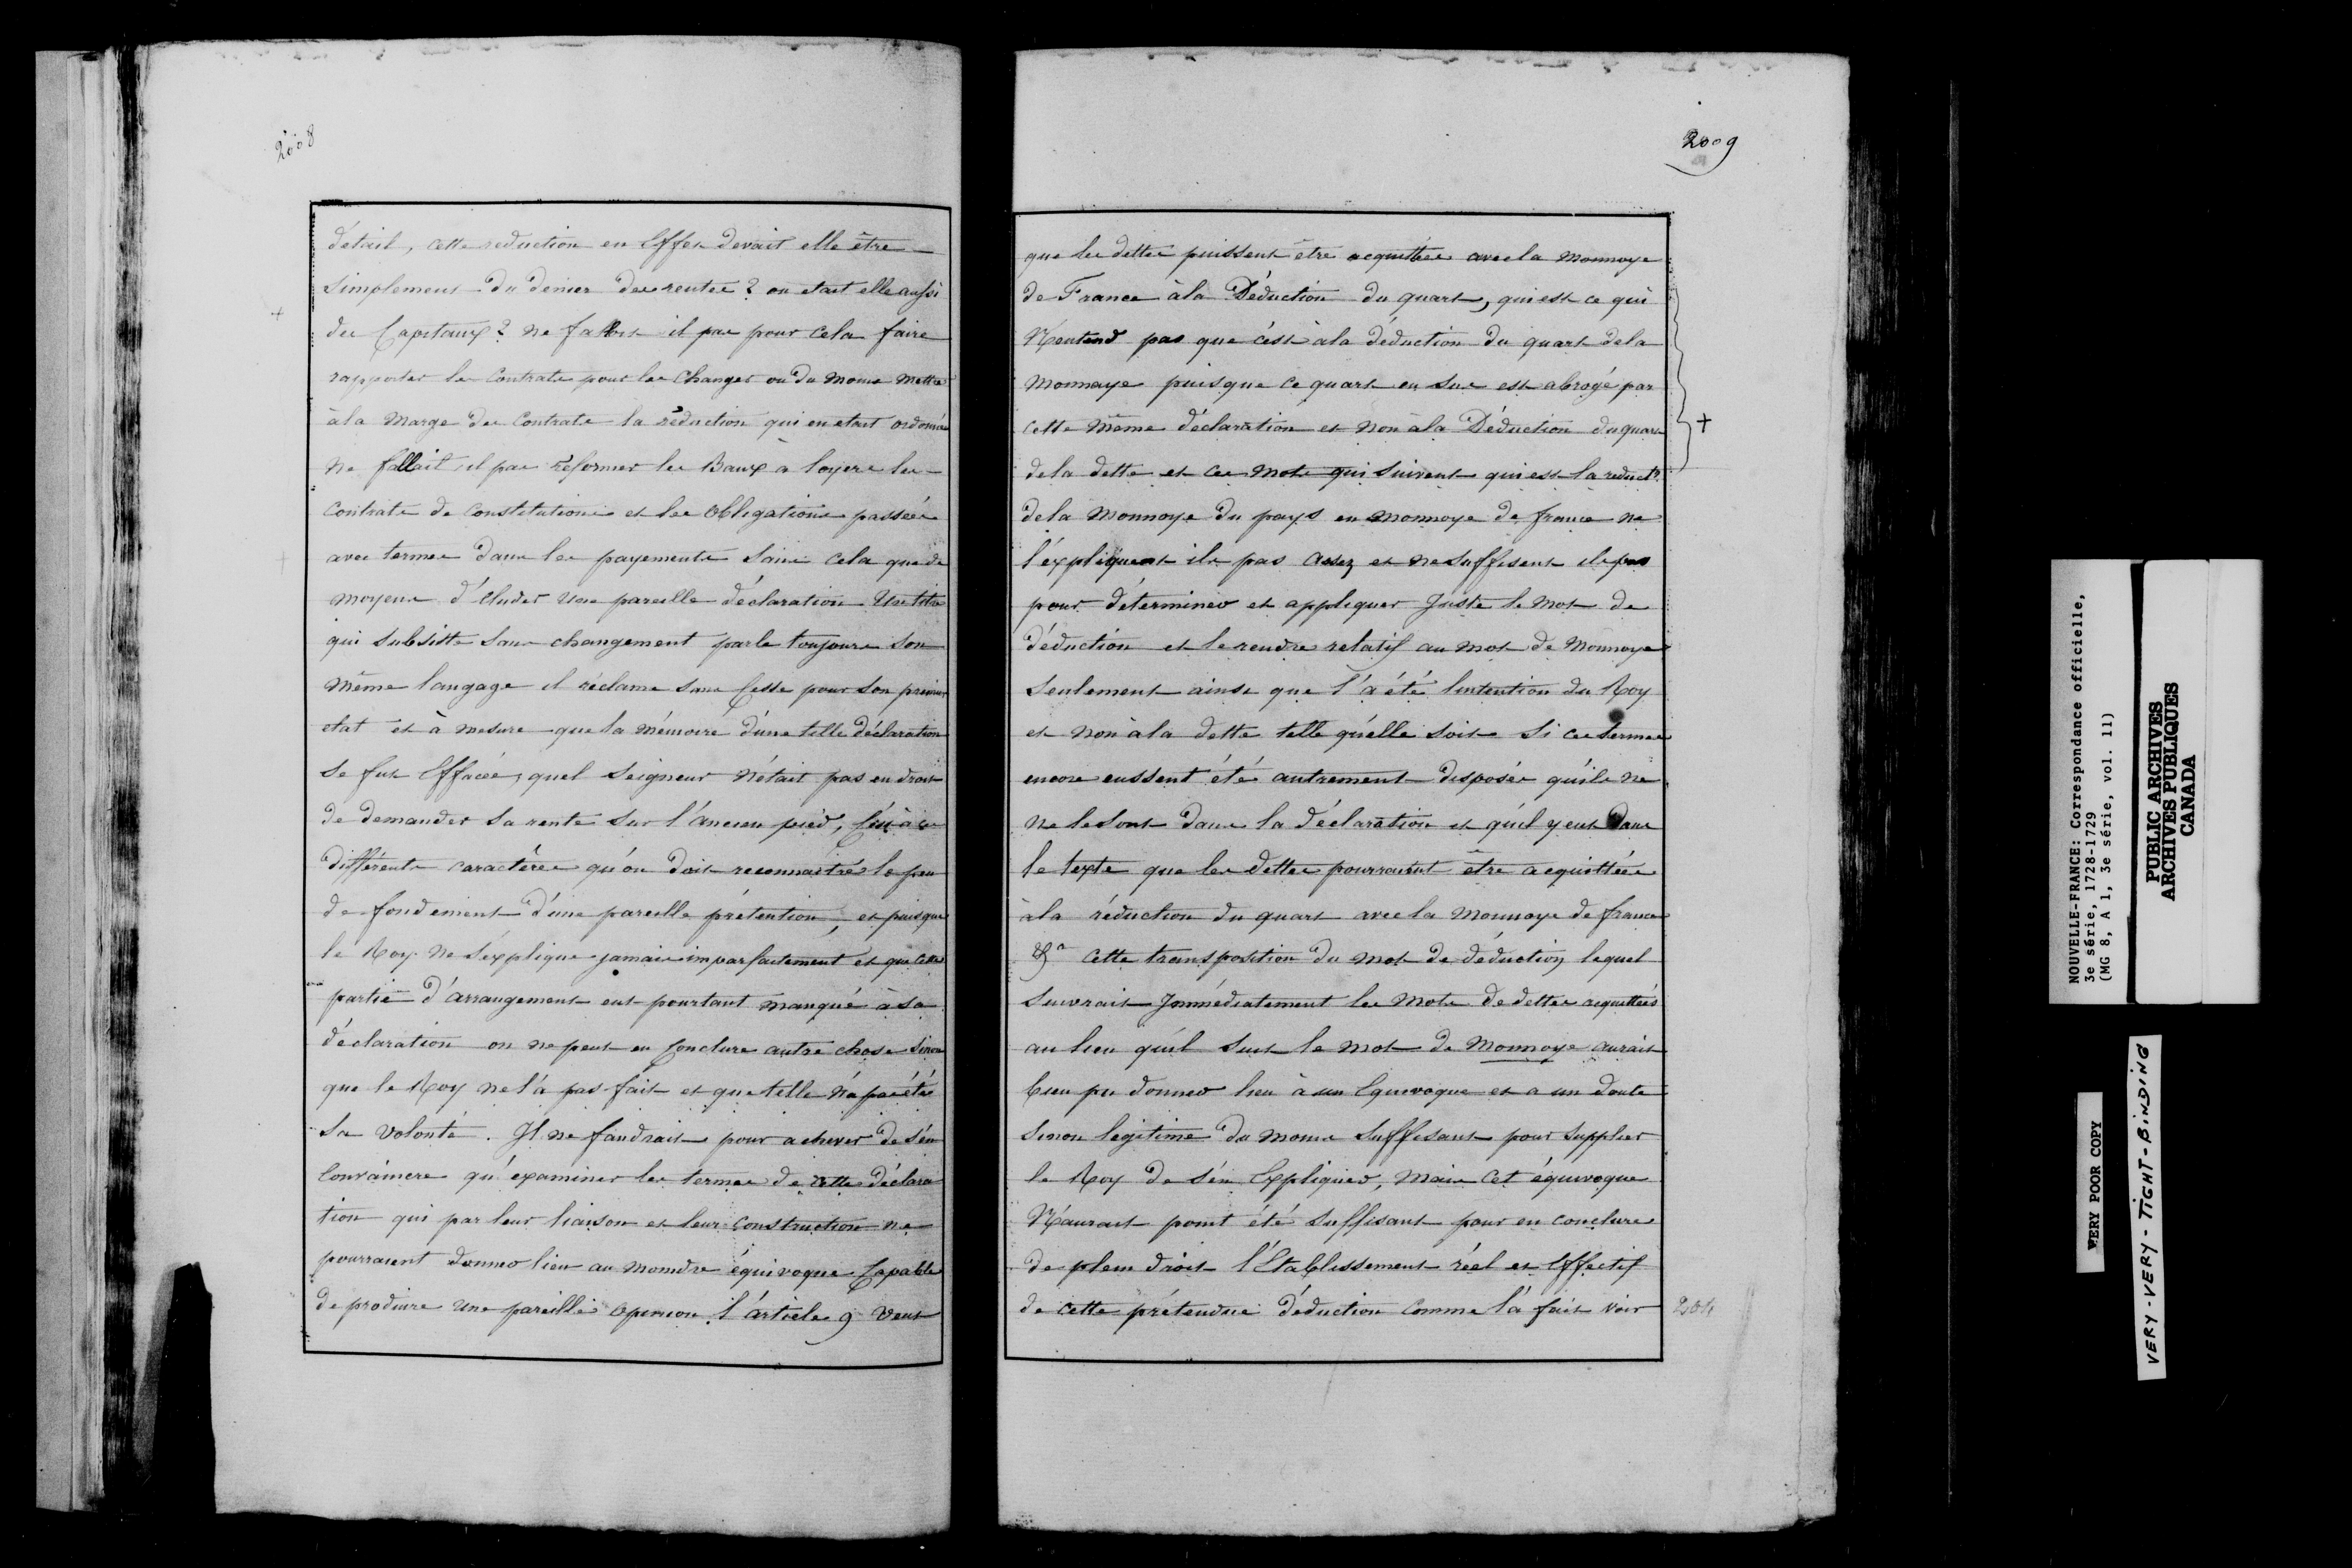 2008
détail, cette reduction en Effet devait elle être
simplement du denier des rentes? ou etait elle aussi
des Capitaux? ne fallait il pas pour cela faire
rapporter les Contrats pour les Changer ou du moins mettre
à la Marge des Contrats la réduction qui en etait ordonnée
ne fallait il pas réformer les Baux a loyers les
Contrats de Constitutions et les Obligations passées
avec termes dans les payements sans cela que de
moyens d'éluder une pareille déclaration Un titre
qui subsiste sans changement parle toujours son
même langage il réclame sans Cesse pour son premier
etat et à mesure que la mémoire d'une telle déclaration
se fut Effacée, quel Seigneur n'était pas en droit
de demander sa rente sur l'ancien pied, C'est à ces
différents caractères qu'on doit reconnaitre le peu
de fondement d'une pareille prétention, et puisque
le Roy ne s'explique jamais imparfaitement et que cette
partie d'arrangement eut pourtant manqué à sa
déclaration on ne peut en Conclure autre chose sinon
que le Roy ne l'a pas fait et que telle n'a pas été
sa volonté. Il ne faudrait pour achever de s'en
Convaincre qu'examiner les termes de cette déclara
tion qui par leur liaison et leur construction ne
pourraient donner lieu au moindre équivoque Capable
de produire une pareille opinion l'article 9 veut
2009
que les dettes puissent être acquittées avec la monnoye
de France à la Déduction du quart, qui est ce qui
N'entend pas que c'est à la déduction du quart de la
monnaye puisque ce quart en sus est abrogé par
cette même déclaration et non à la Déduction du quart
+
de la dette et ces mots qui suivent qui est la reduct.
de la monnoye du pays en monnoye de france ne
l'expliquent ils pas assez et ne suffisent ils pas
pour déterminer et appliquer Juste le mot de
déduction et le rendre relatif au mot de monnoye
seulement ainsi que l'a été l'intention du Roy
et non à la dette telle qu'elle soit si ces termes
encore eussent été autrement disposés qu'ils ne
ne le sont dans la déclaration et qu'il y eut dans
le texte que les dettes pourraient être acquittées
à la réduction du quart avec la monnoye de france
&a cette transposition du mot de déduction lequel
suivrait Immédiatement les mots de dettes acquittées
au lieu qu'il suit le mot de monnoye aurait
bien pu donner lieu à un Equivoque et a un doute
sinon legitime du moins suffisant pour supplier
le Roy de s'en Expliquer, mais cet équivoque
N'aurait point été suffisant pour en conclure
de plein droit l'Etablissement réel et Effectif
de cette prétendue déduction comme l'a fait voir
NOUVELLE-FRANCE: Correspondance officielle,
3e série, 1728-1729
(MG 8, A 1, 3e série, vol. 11)
PUBLIC ARCHIVES
ARCHIVES PUBLIQUES
CANADA
VERY POOR COPY
VERY-VERY-TIGHT-BINDING